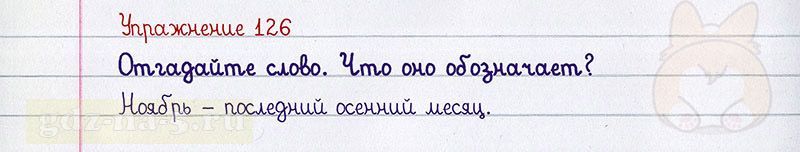 Упражнение 126
Отгадайте слово. Что оно обозначает?
Ноябрь – последний осенний месяц.
gdz-na-5.ru